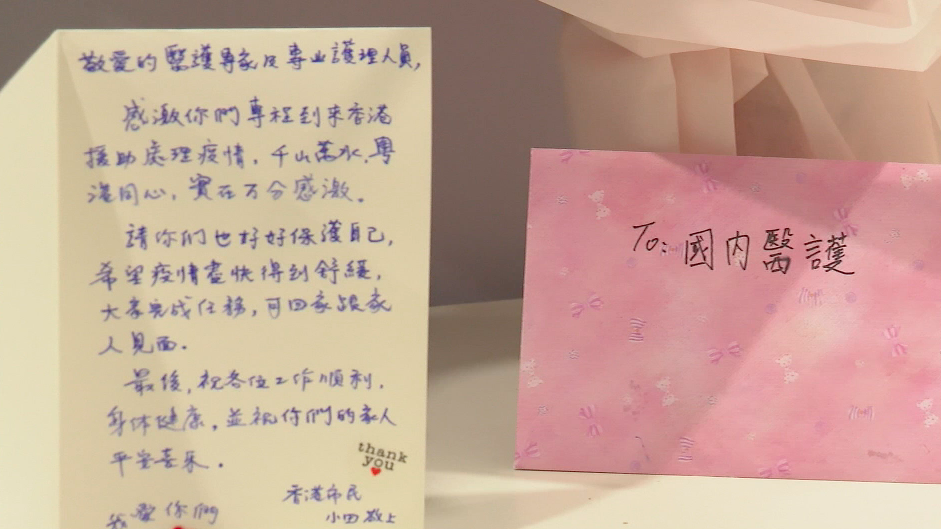 敬愛的醫護專家及專业護理人員,
感激你們專程到來香港
援助處理疫情，千山萬水,粵
港同心，實在万分感激。
請你們也好好保護自己,
希望疫情盡快得到舒緩,
大家完成任務,可回家跟家
人見面。
最後,祝各位工作順利,
身体健康,並祝你們的家人
平安喜乐。
thank
you
香港市民
小四敬上
我愛你們
To:國内醫護